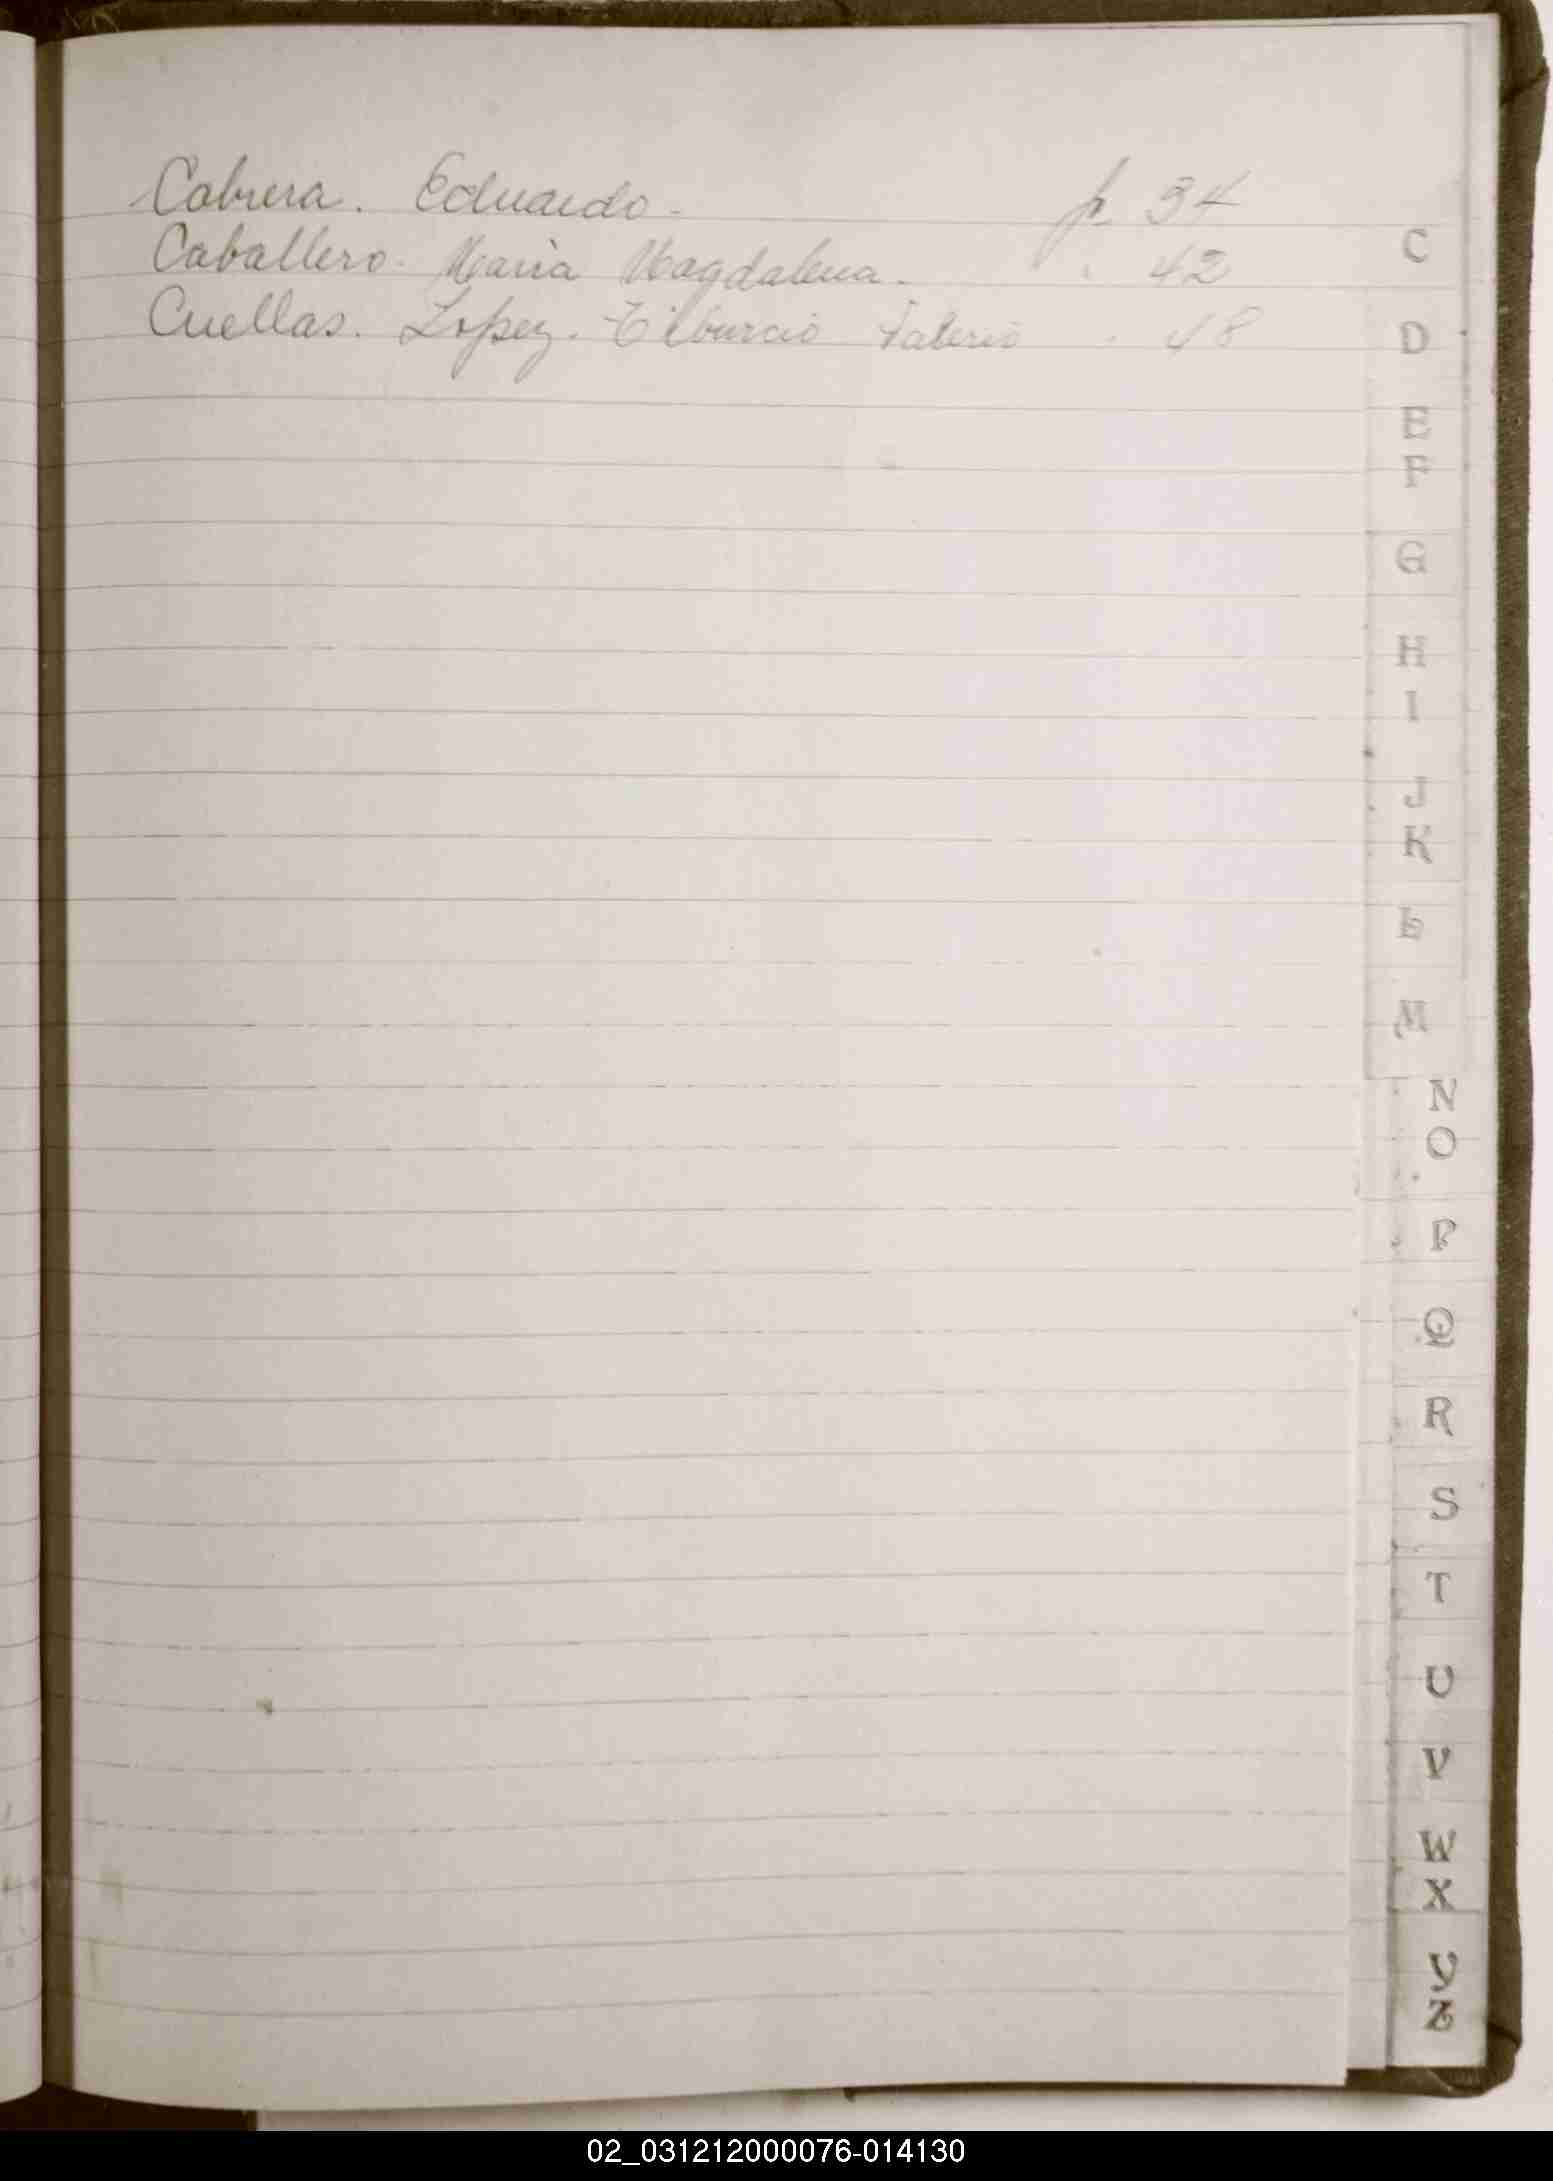 Cabrera. Eduardo. p. 34
Caballero. Maria Magdalena. . 42
Cuellas. Lopez. Tiburcio Valerio . 48
C
D
E
F
G
H
I
J
K
L
M
N
O
P
Q
R
S
T
U
V
W
X
Y
Z
02_031212000076-014130